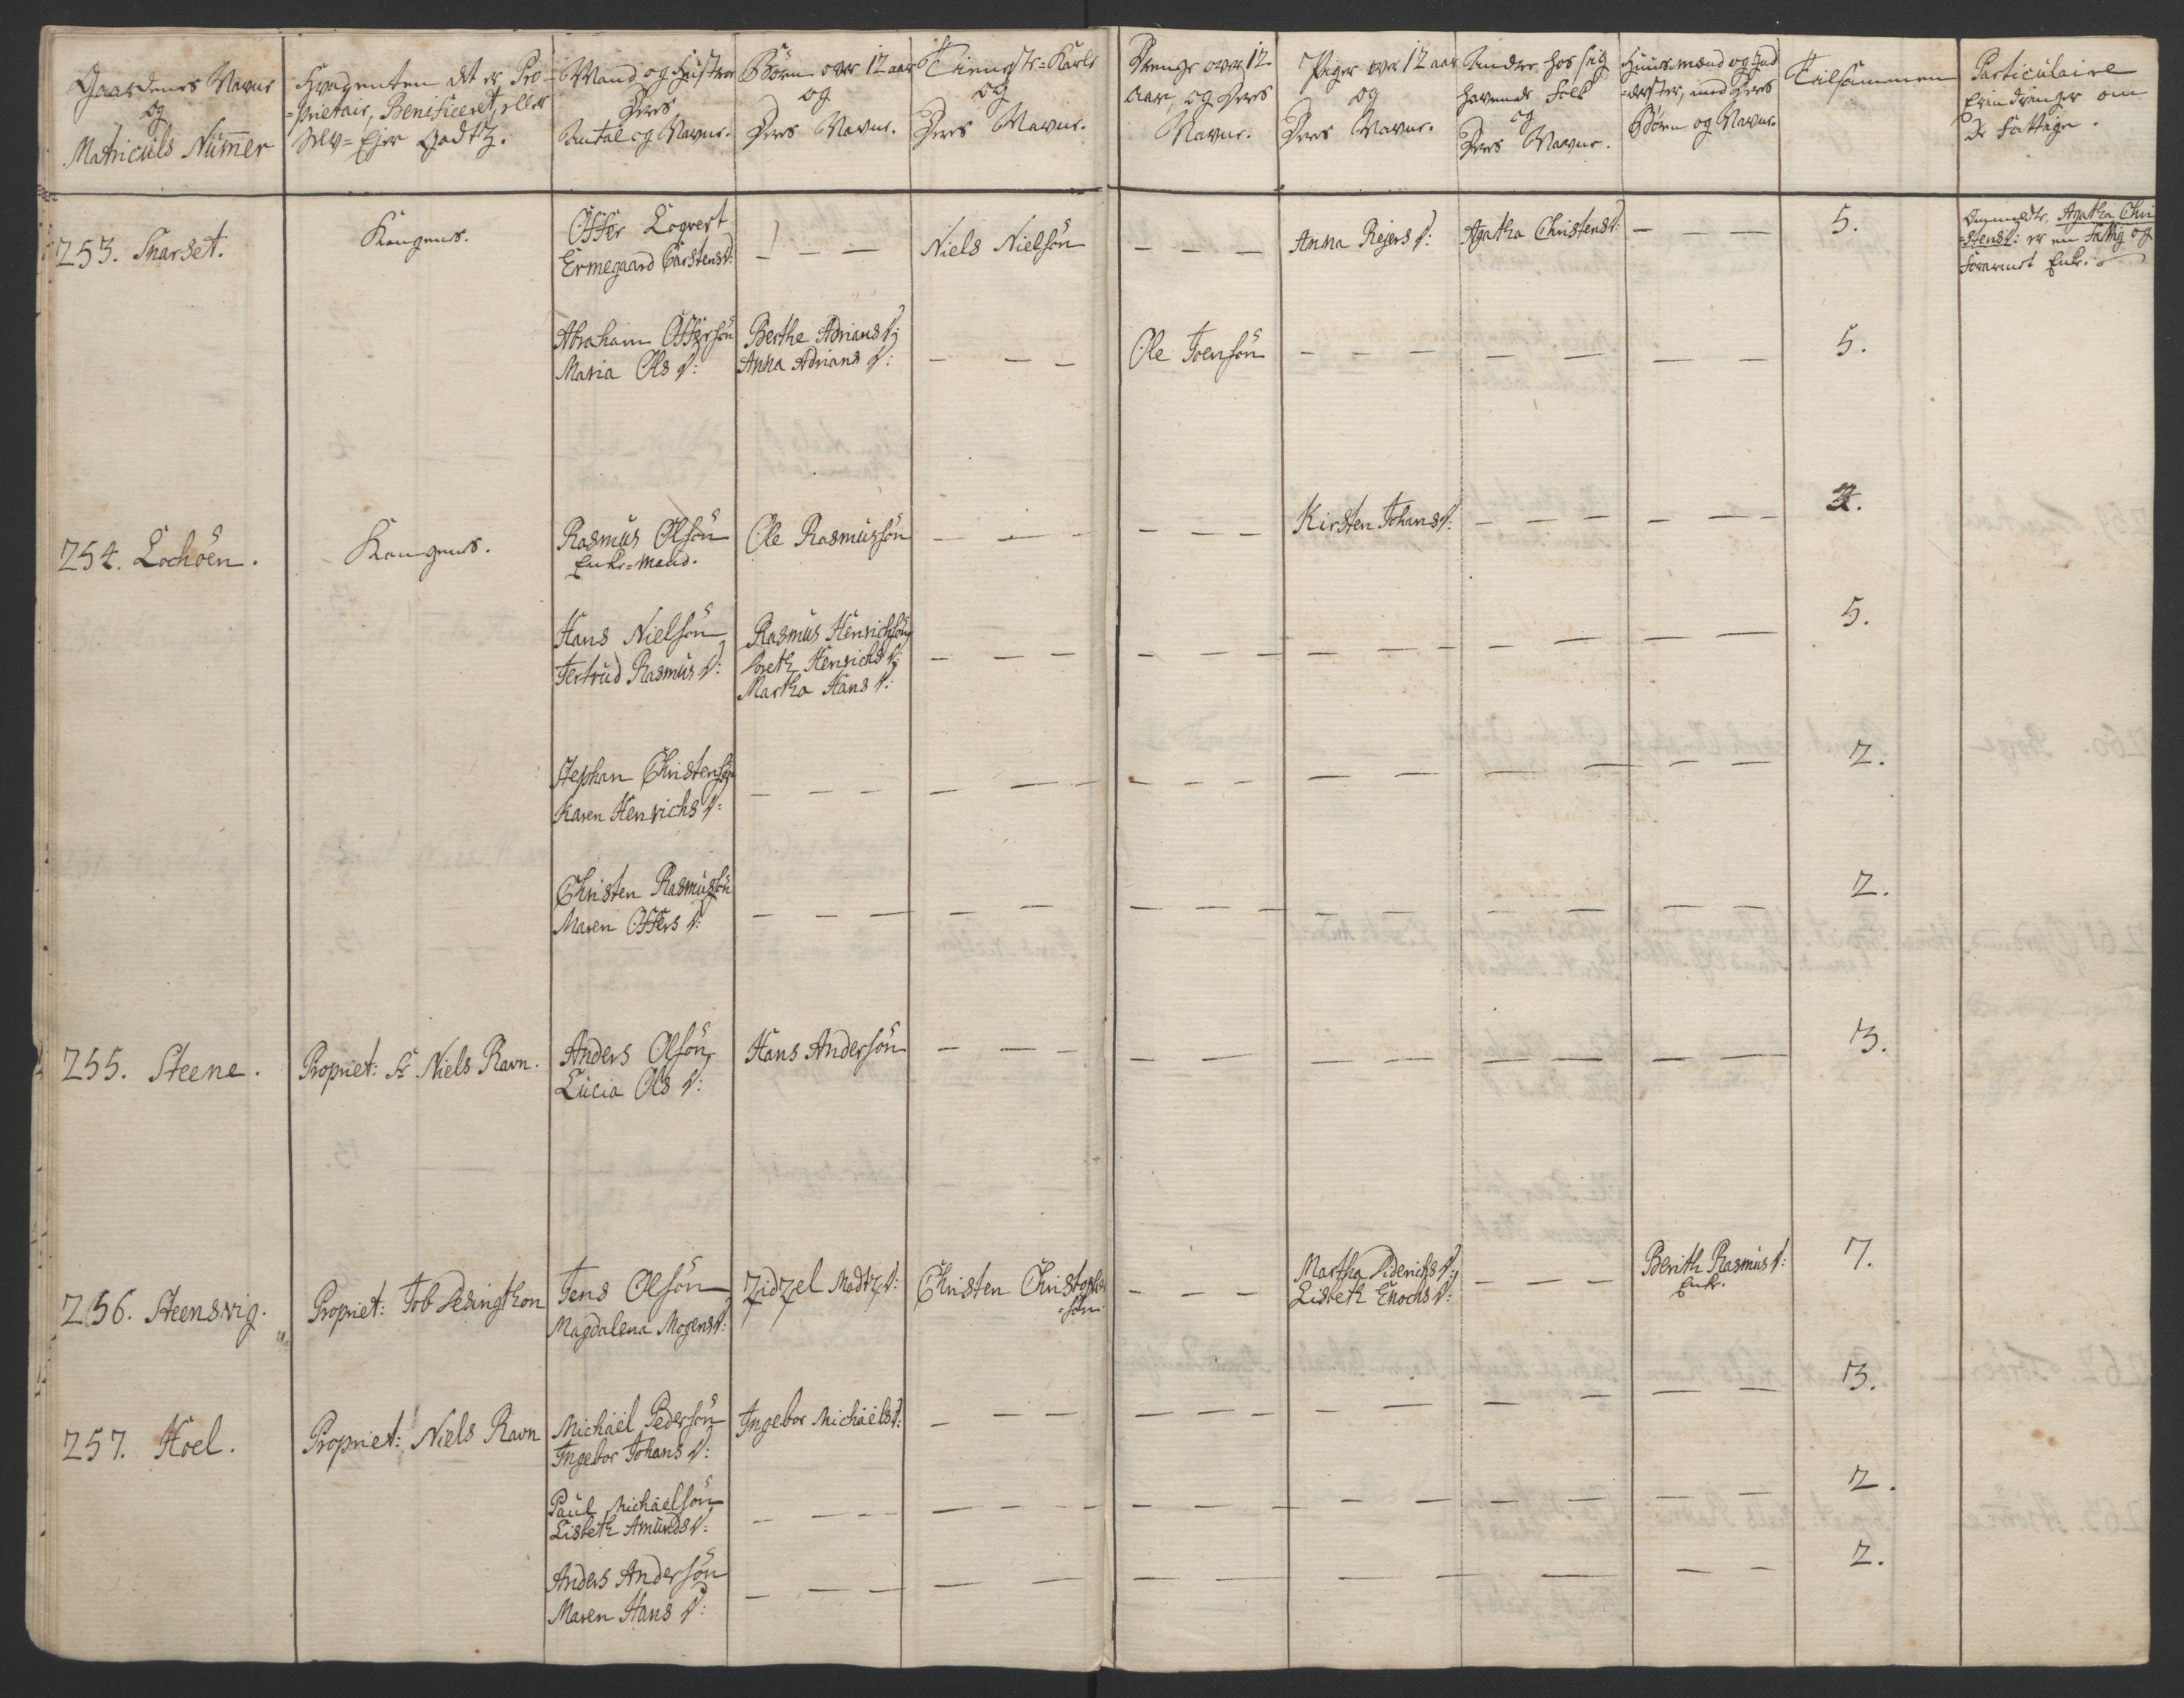 Gaardenes Navne
og
Matriculs Nummer
Hvad enten det er Pro-
-prietair, Beneficeret, eller
Selv-Ejer Godtz.
Mand og Hustrue
Deres
Antal og Navne.
Börn over 12 aar
og
Deres Navne.
Tieneste-Karle
og
Deres Navne.
Drenge over 12
Aar, og Deres
Navne.
Piger over 12 aar
og
Deres Navne.
Andre hos sig
havende Folk
og
Deres Navne.
Huusmænd og Ind
-derster, med Deres
Börn og Navne.
Tilsammen
Particulaire
Erindringer om
de Fattige.
253. Snarset.
Kongens.
Offer Logvert
Ermegaard Carstensd:
— — —
Niels Nielsön
— — —
Anna Rejers d:
Agatha Christensd:
— — —
5.
Agatha Chri
-stensd: er en fattig og
forarmet Enke.
Abraham Offersön
Maria Ols d:
Berthe Adriansd:
Anna Adrians d:
— — —
Ole Joensön
— — — — — — —
5.
254. Lochöen.
Kongens.
Rasmus Olsön
Enke-Mand.
Ole Rasmussön
— — —
— — —
Kirsten Johansd:
— — — — — —
3.
Hans Nielsön
Jertrud Rasmus d:
Rasmus Henrichsön
Soreth Henrichs d:
Martha Hans d:
— — — — — — — — — — —
5.
Stephan Christensön
Karen Henrichs d:
— — — — — — — — — — —
2.
Christen Rasmussön
Maren Offers d:
— — — — — — — — — — —
2.
255. Steene.
Propriet: Sr Niels Ravn.
Anders Olsön
Lucia Ols d:
Hans Andersön
— — — — — — — — — — —
3.
256. Steensvig.
Propriet: Job Desingthon
Jens Olsön
Magdalena Mogensd:
Zidzel Madtzd:
Christen Christophe
-sön
— — —
Martha Diderichsd:
Lisbeth Enochsd:
— — —
Berith Rasmusd:
Enke.
7.
257. Hoel.
Propriet: Niels Ravn
Michäel Pedersön
Ingebor Johans d:
Ingebor Michäelsd:
— — — — — — — — — — —
3.
Paul Michäelsön
Lisbeth Amundsd:
— — — — — — — — — — —
2.
Anders Andersön
Maren Hans d:
— — — — — — — — — —
2.